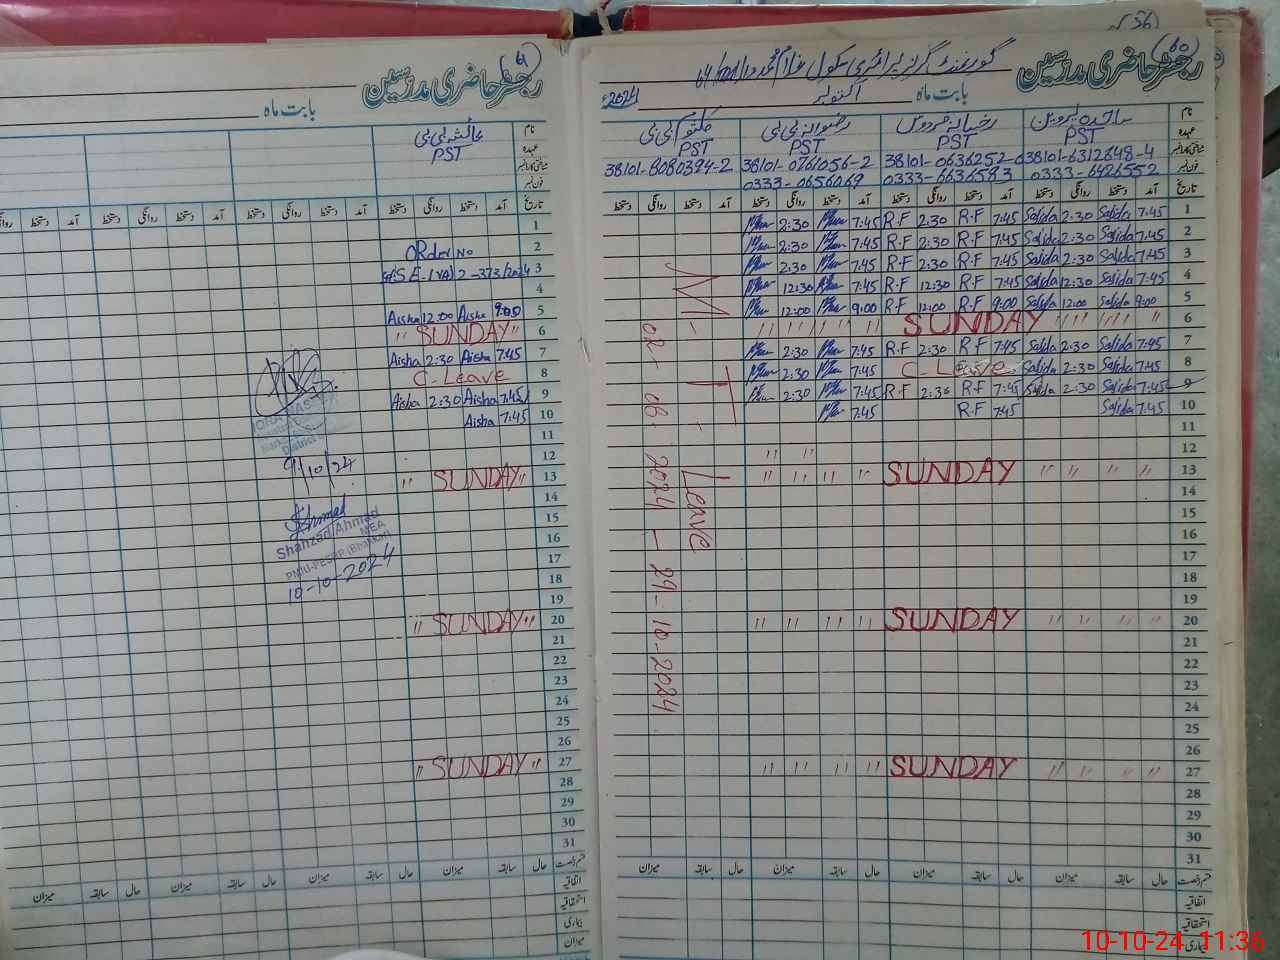 56
60
رجسٹر حاضری مدرسین
گورنمنٹ گرلز پرائمری سکول
بابت ماہ اکتوبر 2024ء
نام ساجدہ پروین رضوانہ بی بی کلثوم بی بی
عہدہ PST PST PST PST
38101-6312648-4 38101-0636252-0 38101-0761056-2 38101-8080394-2
فون نمبر 0333-6426552 0333-6636583 0333-0656069
تاریخ آمد دستخط روانگی دستخط آمد دستخط روانگی دستخط آمد دستخط روانگی دستخط آمد دستخط روانگی دستخط
1 7:45 Sajida 2:30 Sajida 7:45 R.F 2:30 R.F 7:45 2:30
2 7:45 Sajida 2:30 Sajida 7:45 R.F 2:30 R.F 7:45 2:30
3 7:45 Sajida 2:30 Sajida 7:45 R.F 2:30 R.F 7:45 2:30
4 7:45 Sajida 12:30 Sajida 7:45 R.F 12:30 R.F 7:45 12:30
5 9:00 Sajida 12:00 Sajida 9:00 R.F 12:00 R.F 9:00 12:00
6 " " " " " " " SUNDAY " " " " " "
7 7:45 Sajida 2:30 Sajida 7:45 R.F 2:30 R.F 7:45 2:30
8 7:45 Sajida 2:30 Sajida C-Leave 7:45 2:30
9 7:45 Sajida 2:30 Sajida 7:45 R.F 2:30 R.F 7:45 2:30
10 7:45 Sajida 7:45 R.F 7:45
11
12 " "
13 " " " " SUNDAY " " " "
14
15
16
17
18
19
20 " " " " SUNDAY " " " "
21
22
23
24
25
26
27 " " " " SUNDAY " " " "
28
29
30
31
M-T-Leave
02-08-2024 - 29-10-2024
قسم رخصت حال سابقہ میزان حال سابقہ میزان حال سابقہ میزان حال سابقہ میزان
اتفاقیہ
استحقاقیہ
بیماری
61
رجسٹر حاضری مدرسین
بابت ماہ
نام عائشہ بی بی
عہدہ PST
فون نمبر
تاریخ آمد دستخط روانگی دستخط آمد دستخط روانگی دستخط آمد دستخط روانگی دستخط آمد دستخط روانگی
1
2 Order No
3 S.E.(VA) 2-373/2024
4
5 9:00 Aisha 12:00 Aisha
6 " SUNDAY "
7 7:45 Aisha 2:30 Aisha
8 C-Leave
9 7:45 Aisha 2:30 Aisha
10 7:45 Aisha
11
12
13 " SUNDAY "
14
15
16
17
18
19
20 " SUNDAY "
21
22
23
24
25
26
27 " SUNDAY "
28
29
30
31
District
9/10/24
Shahzad Ahmad
MEA
PMIU-PESRP (Bhakkar)
10-10-2024
قسم رخصت حال سابقہ میزان حال سابقہ میزان حال سابقہ میزان حال سابقہ میزان
اتفاقیہ
استحقاقیہ
بیماری
میزان
10-10-24 11:36